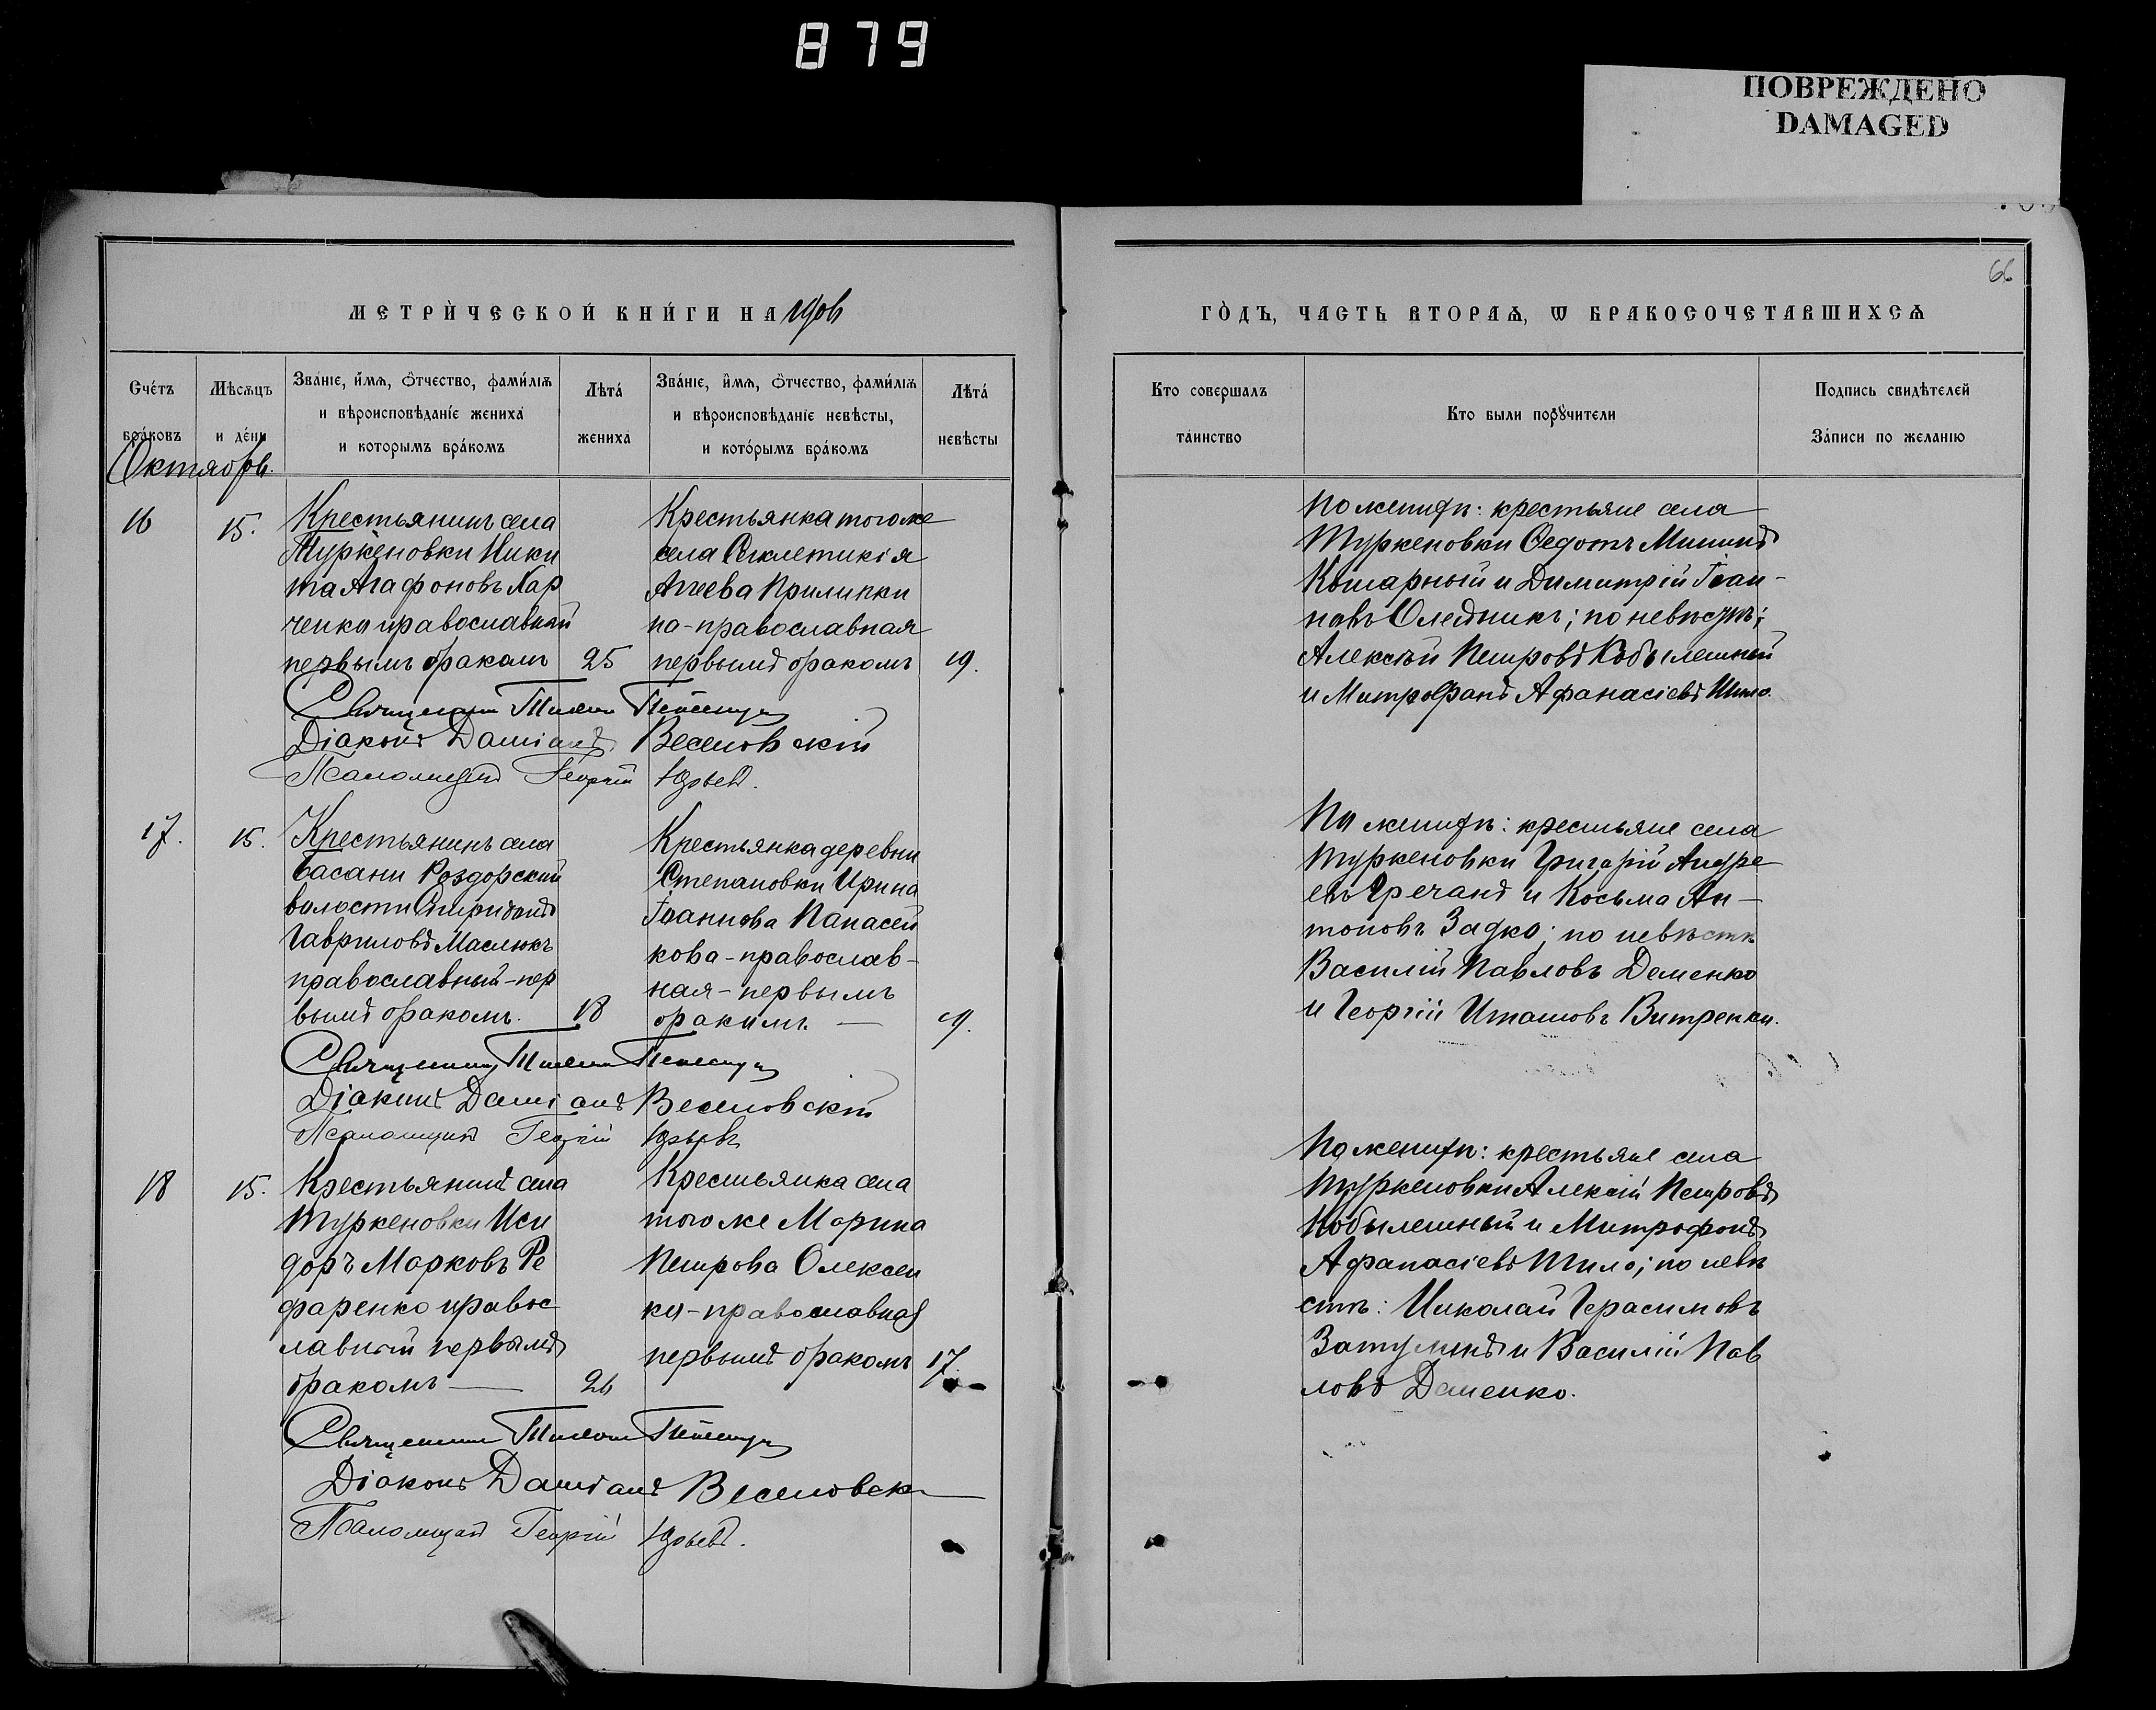 879
ПОВРЕЖДЕНО
DAMAGED
66
МЕТРИ́ЧЕСКОЙ КНИ́ГИ НА 1906
ГО́ДЪ, ЧАСТЬ ВТОРАѦ, Ѿ БРАКОСОЧЕТАВШИХСѦ
Сче́тъ бра́ковъ
Мѣсѧцъ и де́нь
Зва́нїе, и́мѧ, ѻ҆́тчество, фами́лїѧ и вѣроисповѣданїе жениха̀ и которымъ бра́комъ
Лѣта̀ жениха
Зва́нїе, и́мѧ, ѻ҆́тчество, фами́лїѧ и вѣроисповѣданїе невѣсты, и кото́рымъ бра́комъ
Лѣта̀ невѣсты
Кто совершалъ та́инство
Кто были порꙋчители
Подпись свидѣтелей За́писи по желанїю
Октябрь.
16
15.
Крестьянинъ села
Туркеновки Ники
та Агафоновъ Хар
ченко православный
первымъ бракомъ
25
Крестьянка того же
села Синклетикія
Агеева Прилипки
на-православная
первымъ бракомъ
19.
Священникъ Тихонъ
Діаконъ Даміанъ Веселовскій
Псаломщикъ Георгій Юрьевъ.
По женихѣ: крестьяне села
Туркеновки Ѳедотъ Мининъ
Кошарный и Димитрій Іоан-
новъ Олейникъ; по невѣстѣ:
Алексѣй Петровъ Кобылешный
и Митрофанъ Афанасіевъ Шило.
17.
15.
Крестьянинъ села
Басани Роздорской
волости Спиридонъ
Гавриловъ Маслюкъ
православный-пер
вымъ бракомъ.
18
Крестьянка деревни
Степановки Ирина
Іоаннова Панасей
кова-православ-
ная-первымъ
бракомъ. —
19.
Священникъ Тихонъ
Діаконъ Даміанъ Веселовскій
Псаломщикъ Георгій Юрьевъ
По женихѣ: крестьяне села
Туркеновки Григорій Андре
евъ Гречанъ и Косьма Ан-
тоновъ Задко; по невѣстѣ
Василій Павловъ Деменко
и Георгій Витренко.
18
15.
Крестьянинъ села
Туркеновки Иси
доръ Марковъ Ре
фаренко правос
лавный первымъ
бракомъ —
26
Крестьянка села
того же Марина
Петрова Олексен
ко-православная
первымъ бракомъ
17.
Священникъ Тихонъ
Діаконъ Даміанъ Веселовск
Псаломщикъ Георгій Юрьевъ.
По женихѣ: крестьяне села
Туркеновки Алексій Петровъ
Кобылешный и Митрофанъ
Афанасіевъ Шило; по невѣ
стѣ: Николай Герасимовъ
и Василій Пав
ловъ Деменко.